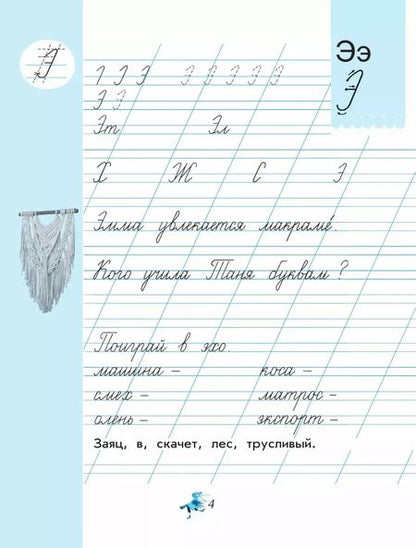 Ээ
Э
Э
Э Э Э Э Э Э Э Э
Э Э
Эт Эл
Х Ж С Э
Эмма увлекается макраме.
Кого учила Таня буквам?
Поиграй в эхо.
машина – коса –
смех – матрос –
олень – экспорт –
Заяц, в, скачет, лес, трусливый.
4